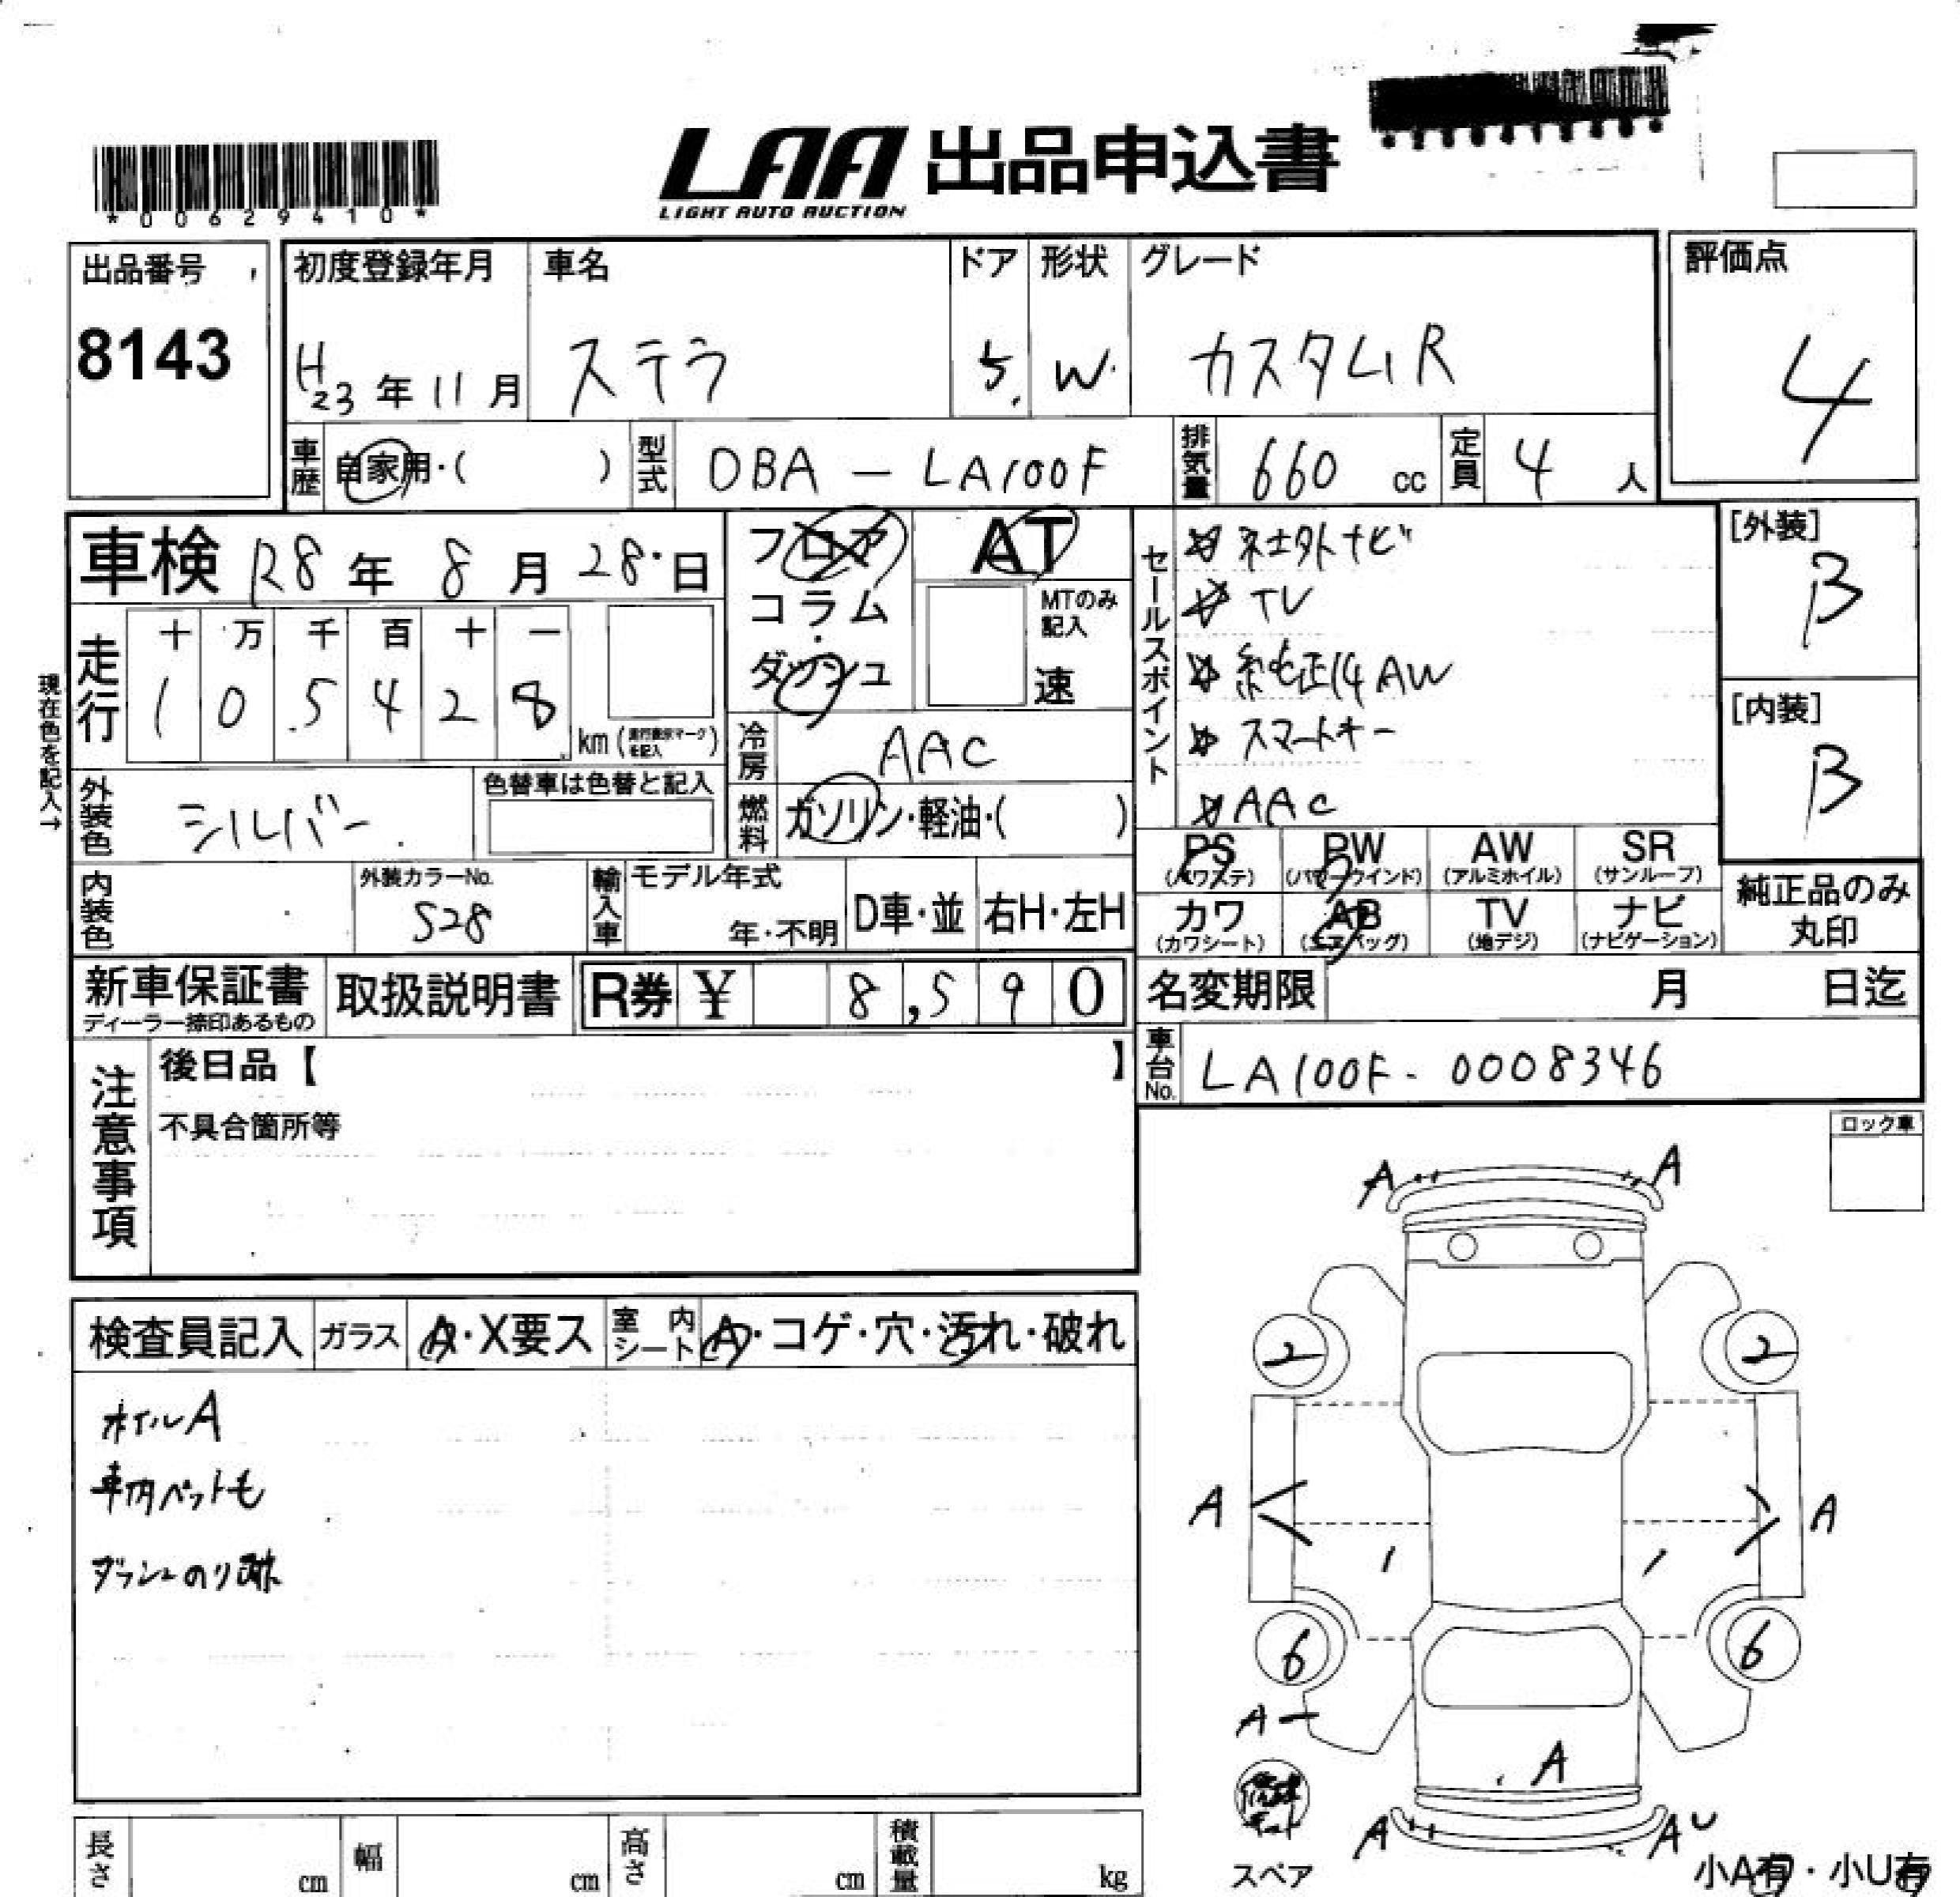 LAA 出品申込書
LIGHT AUTO AUCTION
*00629410*
出品番号
8143
初度登録年月
H23年11月
車名
ステラ
ドア
5
形状
W
グレード
カスタムR
評価点
4
車歴
自家用・( )
型式
DBA-LA100F
排気量
660 cc
定員
4 人
車検 R8年 8月 28日
フロア
コラム
・
ダッシュ
AT
MTのみ記入
速
セールスポイント
社外ナビ
TV
純正14AW
スマートキー
AAC
[外装]
B
[内装]
B
現在色を記入→
走行
十 万 千 百 十 一
1 0 5 4 2 8
km(走行表示マークを記入)
冷房
AAC
外装色
シルバー
色替車は色替と記入
燃料
ガソリン・軽油・( )
PS (パワステ)
PW (パワーウインド)
AW (アルミホイル)
SR (サンルーフ)
カワ (カワシート)
AB (エアバッグ)
TV (地デジ)
ナビ (ナビゲーション)
純正品のみ丸印
内装色
外装カラーNo.
S28
輸入車
モデル年式
年・不明
D車・並
右H・左H
新車保証書
ディーラー捺印あるもの
取扱説明書
R券 ¥ 8,590
名変期限
月 日迄
車台No.
LA100F-0008346
注意事項
後日品【 】
不具合箇所等
ロック車
検査員記入
ガラス
A・X要ス
室内シート
A・コゲ・穴・汚れ・破れ
ホイルA
車内ペットも
ダッシュのり跡
A A
2 2
A A
6 6
A
A
A AU
スペア
小A有・小U有
長さ cm
幅 cm
高さ cm
積載量 kg